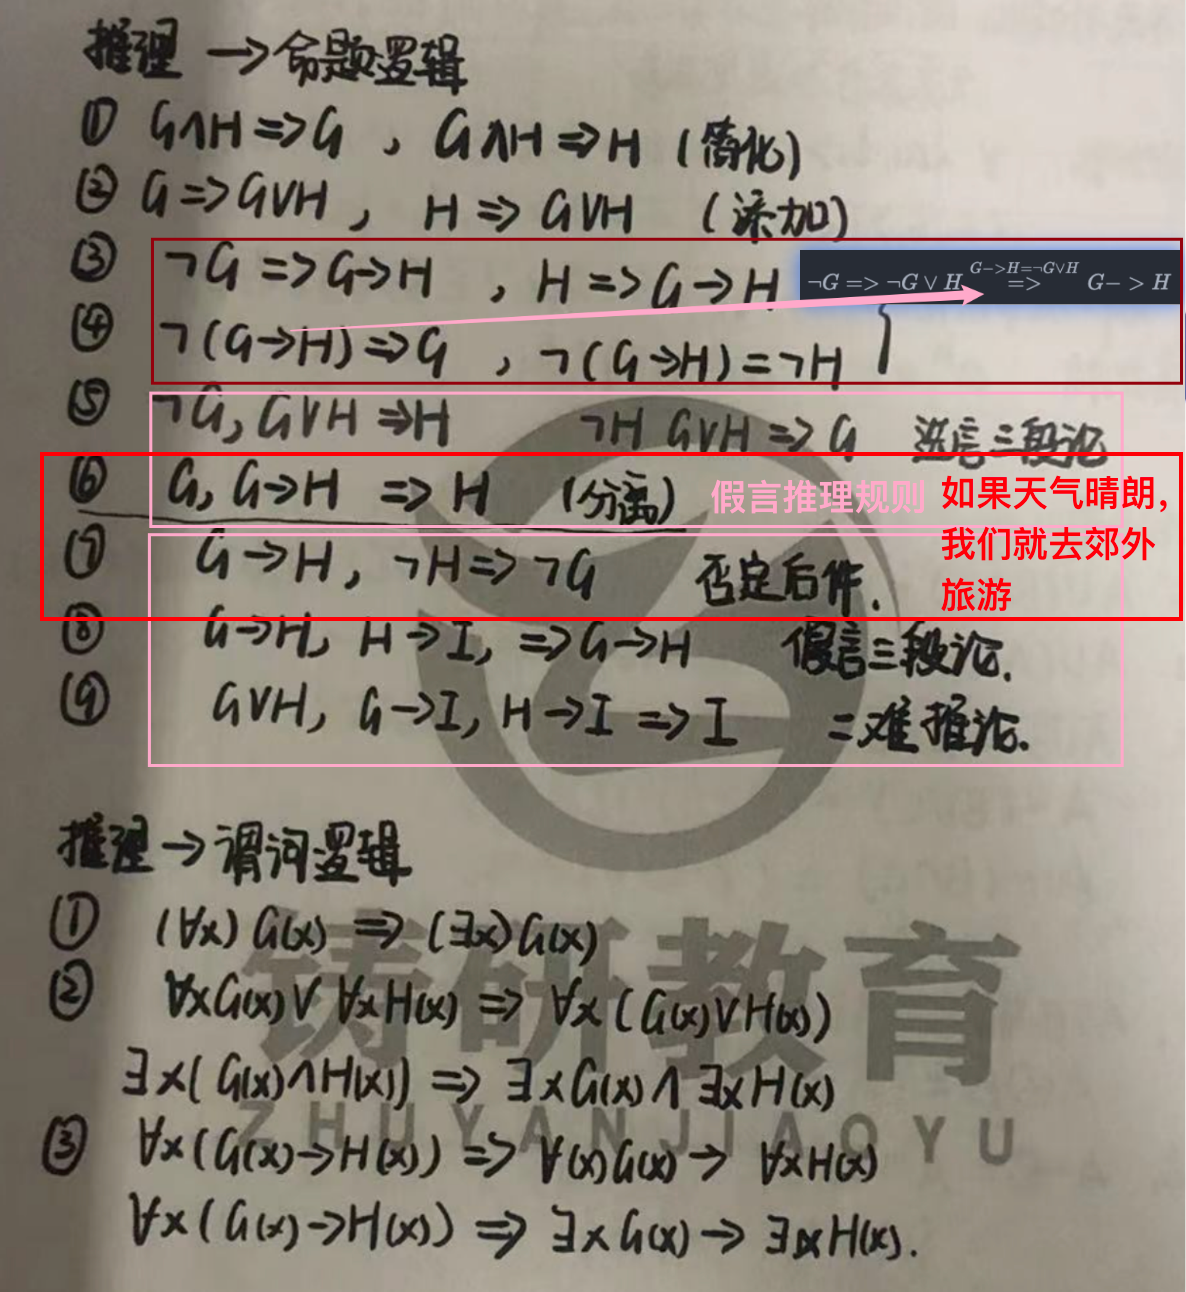 推理 → 命题逻辑
① G∧H => G , G∧H => H (简化)
② G => G∨H , H => G∨H (添加)
③ ¬G => G→H , H => G→H
¬G => ¬G ∨ H G−>H=¬G∨H => G− > H
④ ¬(G→H) => G , ¬(G→H) = ¬H
⑤ ¬G, G∨H => H ¬H G∨H => G 选言三段论
⑥ G, G→H => H (分离) 假言推理规则
如果天气晴朗，
我们就去郊外
旅游
⑦ G→H, ¬H => ¬G 否定后件.
⑧ G→H, H→I, => G→H 假言三段论.
⑨ G∨H, G→I, H→I => I 二难推论.
推理 → 谓词逻辑
① (∀x) G(x) => (∃x) G(x)
② ∀xG(x) ∨ ∀xH(x) => ∀x (G(x)∨H(x))
∃x( G(x)∧H(x)) => ∃xG(x) ∧ ∃xH(x)
③ ∀x(G(x)→H(x)) => ∀(x)G(x) → ∀xH(x)
∀x(G(x)→H(x)) => ∃xG(x) → ∃xH(x).
铸研教育
ZHUYANJIAOYU